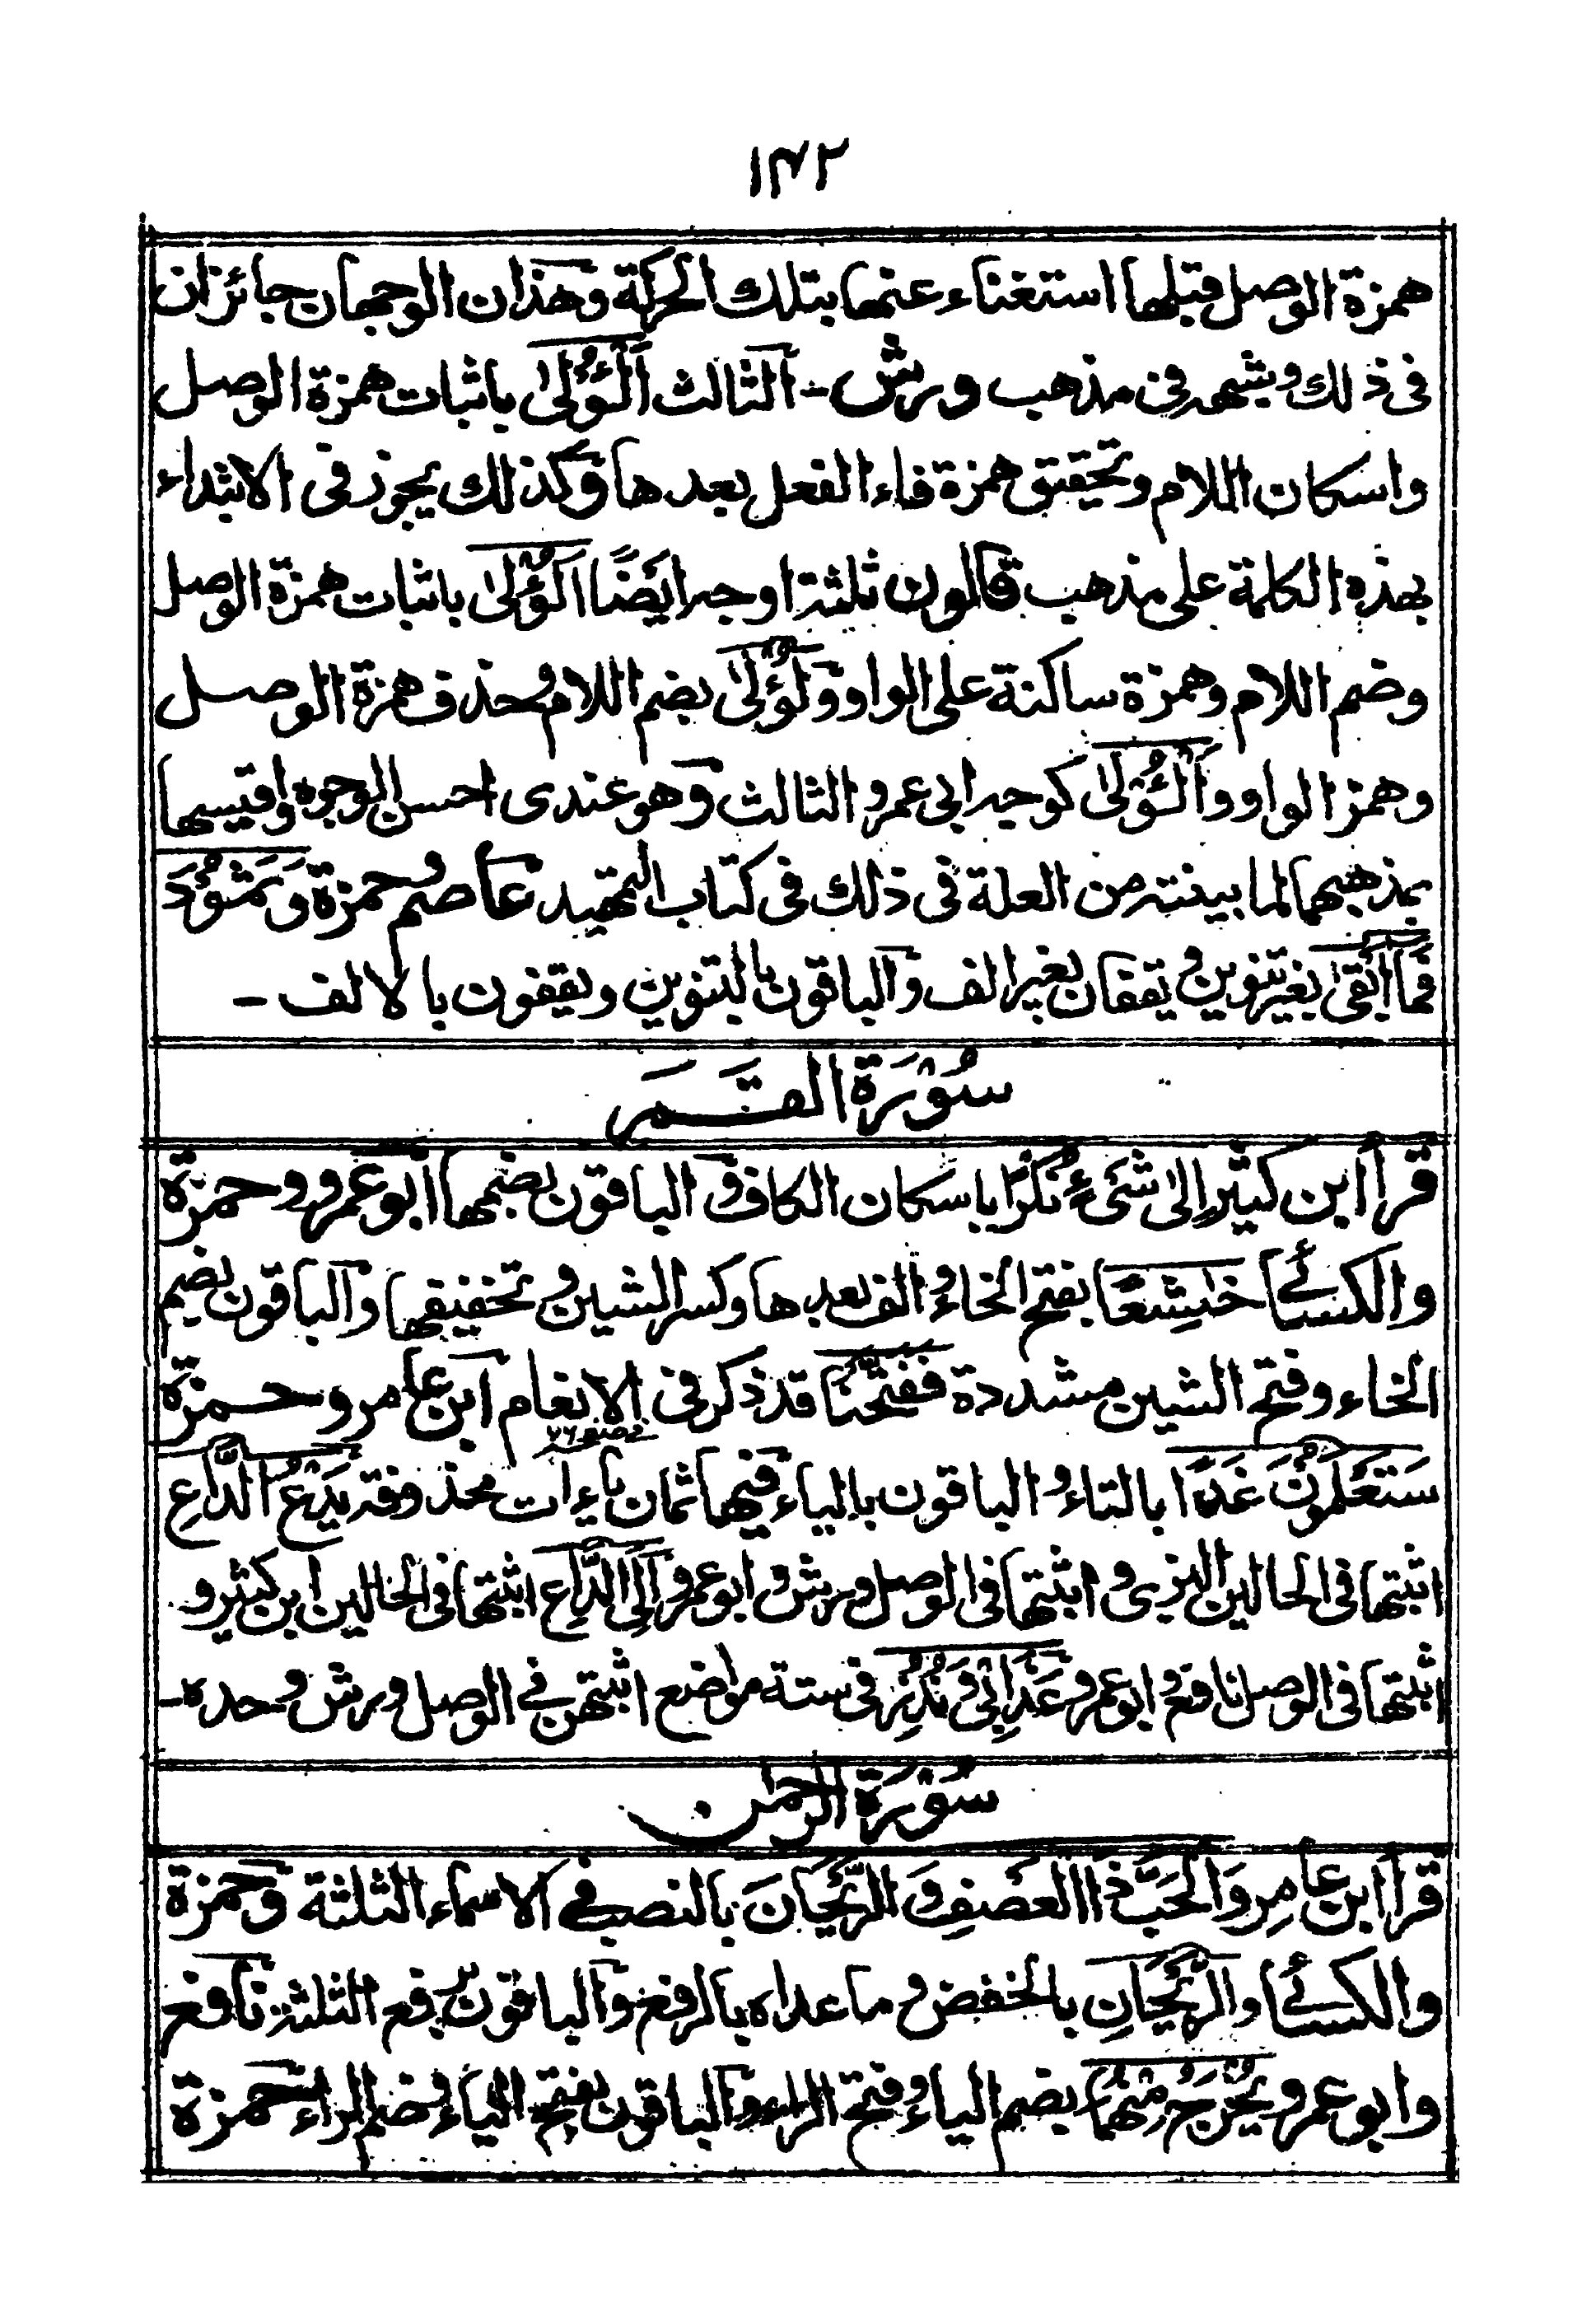 ١٤٢
همزة الوصل قبلها استغناء عنها بتلك الحركة وهذان الوجهان جائزان
فى ذلك وشبهه فى مذهب ورش - الثالث اَلْؤُلىٰ باثبات همزة الوصل
واسكان اللام وتحقيق همزة فاء الفعل بعدها وكذلك يجوز فى الابتداء
بهذه الكلمة على مذهب قالون ثلثة اوجه ايضًا اَلُؤْلىٰ باثبات همزة الوصل
وضم اللام وهمزة ساكنة على الواو ولُؤْلىٰ بضم اللام وحذف همزة الوصل
وهمز الواو واَلْؤُلىٰ كوجه ابى عمرو الثالث وهو عندى احسن الوجوه واقيسها
بمذهبهما لما بينته من العلة فى ذلك فى كتاب التمهيد عاصم وحمزة وَثَمُوْدَ
فَمَا اَبْقىٰ بغير تنوين ويقفان بغير الف والباقون بالتنوين ويقفون بالالف -
سُوْرَةُ الْقَمَر
قرأ ابن كثير اِلىٰ شَىْءٍ نُكْرٍ باسكان الكاف والباقون بضمها ابو عمرو وحمزة
والكسائى خَاشِعًا بفتح الخاء والف بعدها وكسر الشين وتخفيفها والباقون بضم
الخاء وفتح الشين مشددة فَفَتَحْنَا قد ذكر فى الانعام ابن عامر وحمزة
فى صفحہ ٧٦
سَتَعْلَمُوْنَ غَدًا بالتاء والباقون بالياء فيها ثمان ياءات محذوفة يَدْعُ الدَّاعِ
اثبتها فى الحالين البزى واثبتها فى الوصل ورش وابو عمرو اِلَى الدَّاعِ اثبتها فى الحالين ابن كثير و
اثبتها فى الوصل نافع وابو عمرو عَذَابِىْ وَنُذُرِ فى ستة مواضع اثبتهن فى الوصل ورش وحده -
سُوْرَةُ الرحمٰن
قرأ ابن عامر وَالْحَبَّ ذَا الْعَصْفِ وَالرَّيْحَانَ بالنصب فى الاسماء الثلثة وحمزة
والكسائى والرَّيْحَانِ بالخفض وما عداه بالرفع والباقون برفع الثلثة نافع
وابو عمرو يُخْرَجُ مِنْهُمَا بضم الياء وفتح الراء والباقون بفتح الياء وضم الراء حمزة